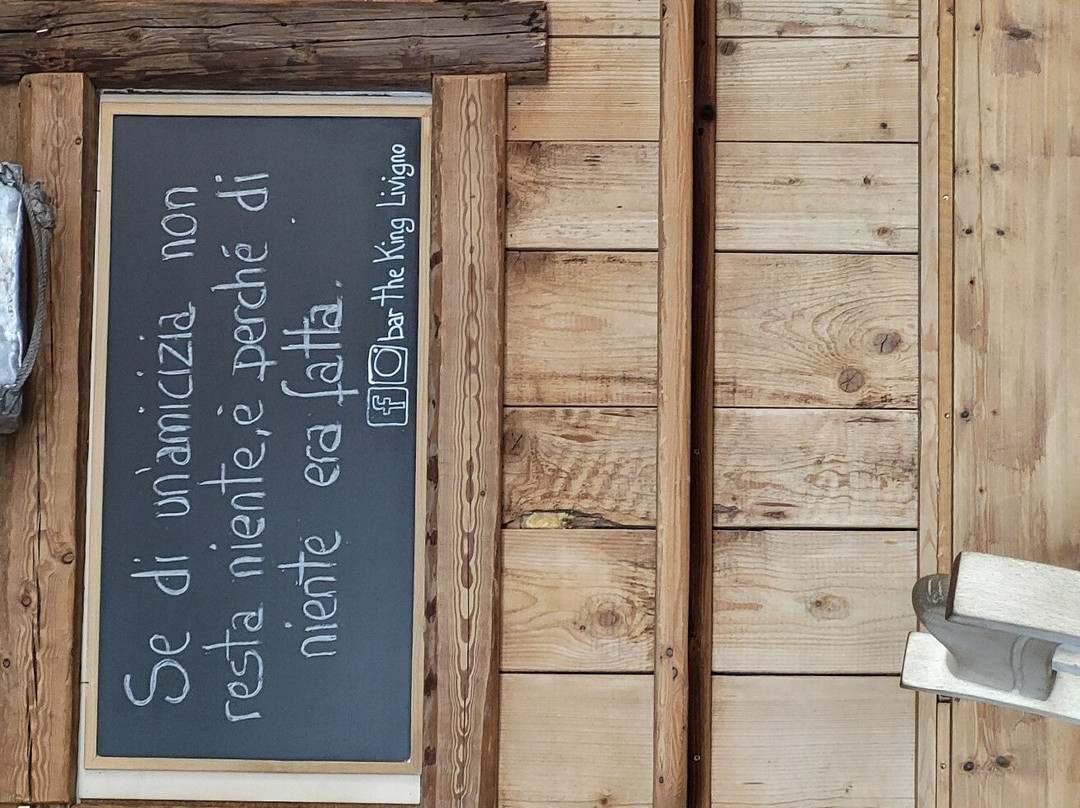 Se di un'amicizia non
resta niente, è perché di
niente era fatta.
bar the King Livigno